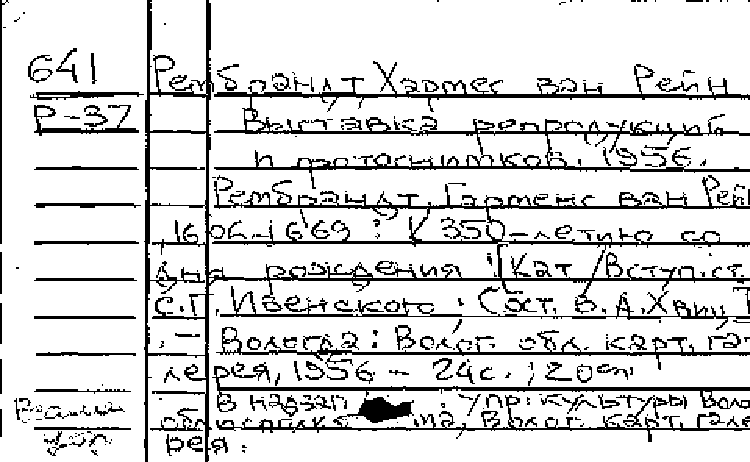 641 Рембрандт Хармес ван Рейн
Р-37 Выставка репродукций
и фотоснимков. 1956.
Рембрандт, Гарменс ван Рей
1606-1669 : К 350-летию со
дня рождения : [Кат / Вступ. ст.
С.Г. Ивенского ; Сост. В. А. Хвиц
. - Вологда : Волог. обл. карт. га
лерея, 1956 - 24с. ; 20см
В надзаг : Упр. культуры Воло
Волог. карт. гале
рея.